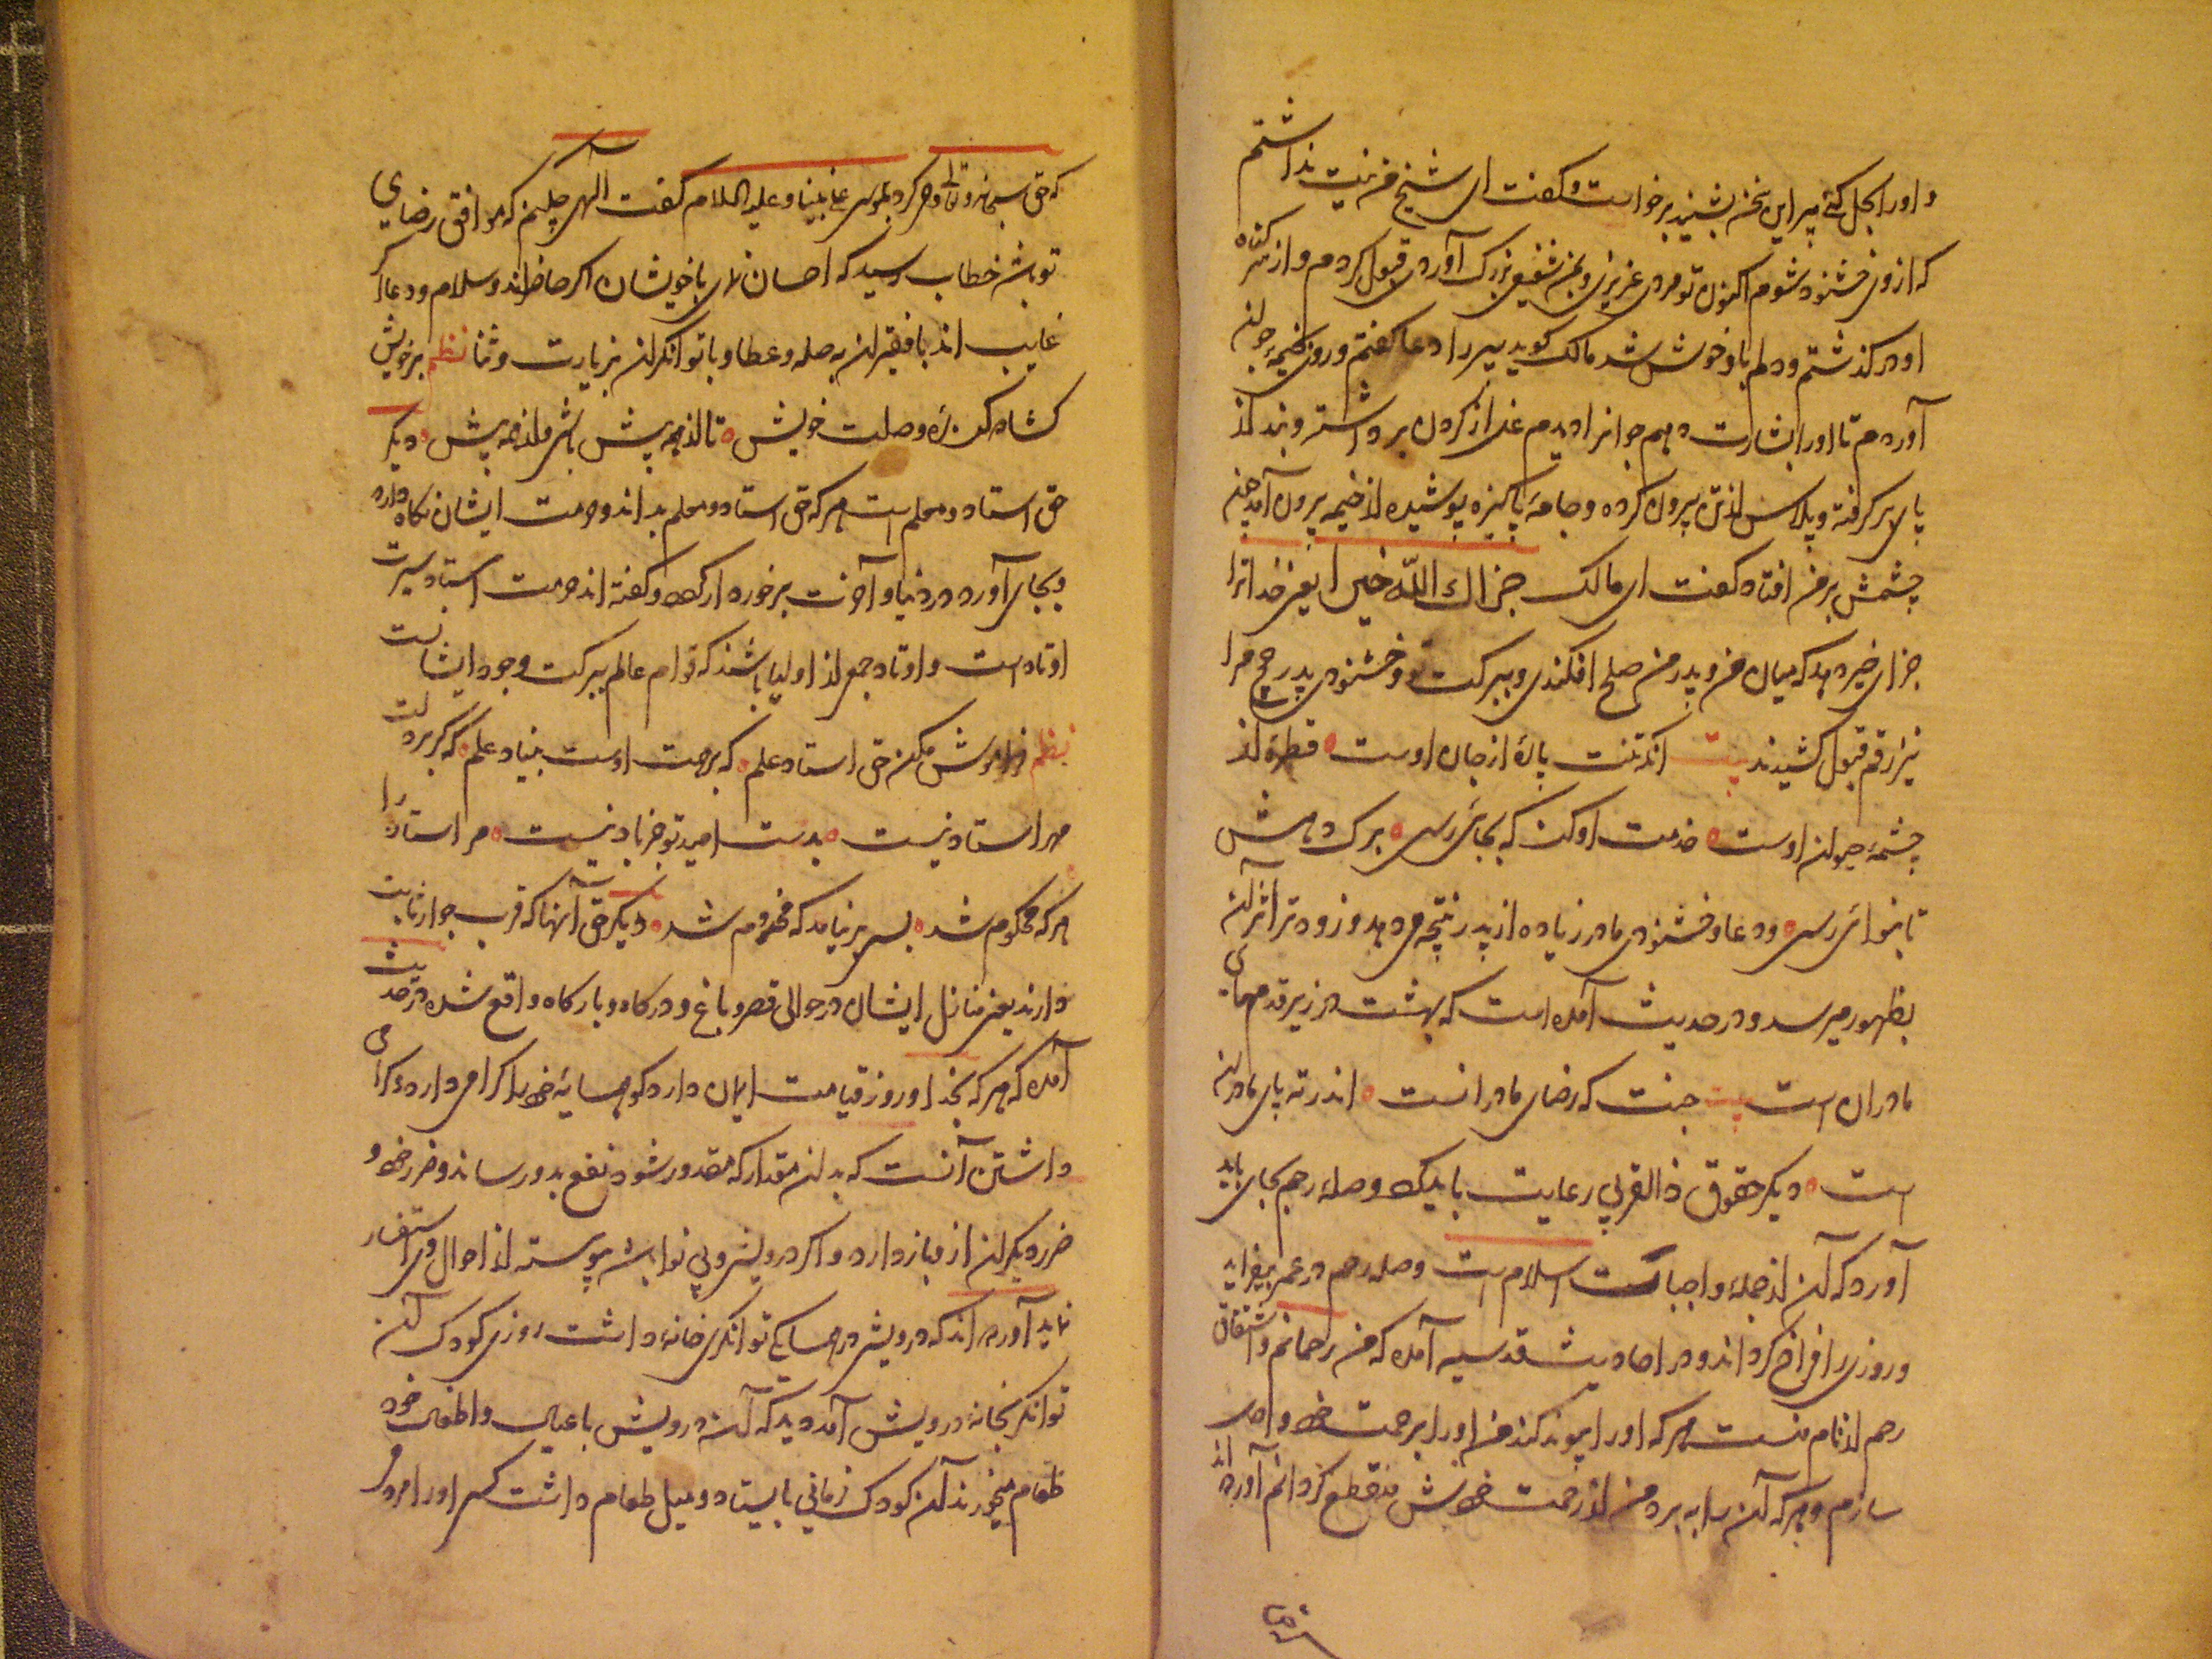 و اورا بحل کنی پیر این سخن بشنید برخواست و گفت ای شیخ من نیت نداشتم
که ازو خشنود شوم اکنون تو مردی عزیزی و بمن شفیعی بزرگ آوردی قبول کردم و از سر گناه
او در گذشتم و دلم با او خوش شد مالک گوید پیر را دعا گفتم و روی بخیمه جوان
آوردم تا اورا بشارت دهم جوانرا دیدم غل از گردن برداشته و بند از
پای بر گرفته و پلاس از تن بیرون کرده و جامه پاکیزه پوشیده از خیمه بیرون آمد چون
چشمش بر من افتاد گفت ای مالک جزاك الله خیرا یعنی خدا ترا
جزای خیر دهد که میان من و پدر من صلح افکندی و ببرکت تو و خشنودی پدر حج مرا
نیز رقم قبول کشیدند بیت آنکه تنت پاره از جان اوست قطره از
چشمه حیوان اوست خدمت او کن که بجائی رسی برگ دهش
تا بنوائی رسی و دعا و خشنودی مادر زیاده از پدر نتیجه می دهد و زودتر اثر آن
بظهور میرسد و در حدیث آمده است که بهشت در زیر قدمهای
مادران است بیت جنت که رضای مادرانست اندر ته پای مادران
است دیگر حقوق ذالقربی رعایت باید کرد وصله رحم بجای باید
آورد که آن از جمله واجبات اسلام است وصله رحم در عمر بیفزاید
و روزی را فراخ گرداند و در احادیث قدسیه آمده که من رحمانم و اشتقاق
رحم از نام منست هر که اورا پیوند کند من اورا برحمت خود واصل
سازم و هر که آن را به برد من از رحمت خودش منقطع گردانم آورده اند
که حق سبحانه و تعالی وحی کرد بموسی علی نبینا و علیه السلام گفت الهی چکنم که موافق رضای
تو باشد خطاب رسید که احسان نمای با خویشان اگر حاضرند و سلام و دعا اگر
غایب اند با فقیران به صله و عطا و با توانگران بزیارت و ثنا نظم بر خویش
گشاده کن ره وصلت خویش تا از همه پیش باشی و از همه بیش دیگر
حق استاد و معلم است هر که حق استاد و معلم بداند و حرمت ایشان نگاه دارد
و بجای آورد در دنیا و آخرت برخوردار گردد و گفته اند حرمت استاد سیرت
اوتاد است و اوتاد جمعی از اولیا باشند که قوام عالم ببرکت وجود ایشانست
نظم فراموش مکن حق استاد علم که بر همت اوست بنیاد علم که گر بر دلت
مهر استاد نیست بدست امید تو جز باد نیست مر استاد را
هر که محکوم شد بسی بر نیامد که مخدوم شد دیگر حق آنها که قرب جوار ثابت
دارند یعنی منازل ایشان در حوالی قصر و باغ و درگاه و بارگاه واقع شده در حدیث
آمده که هر که بخدا و روز قیامت ایمان دارد کو همسایه خود را گرامی دارد و گرامی
داشتن آنست که بدان مقدار که مقدور شود نفع بدو رساند و ضرر خود و
ضرر دیگران از و باز دارد و اگر درویش و بی نوا باشد پیوسته از احوال وی استفسار
نماید آورده اند که درویشی در همسایگی توانگری خانه داشت روزی کودک آن
توانگر بخانه درویش آمد دید که آن درویش با عیال و اطفال خود
طعام میخورند آن کودک زمانی بایستاد و میل طعام داشت کسی اورا مردمی